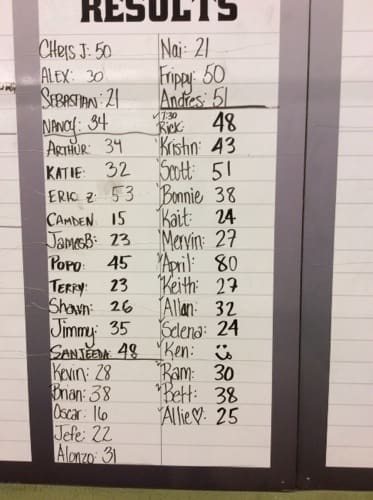 RESULTS
CHRIS J: 50
ALEX: 30
SEBASTIAN: 21
NANCY: 34
ARTHUR: 34
KATIE: 32
ERIC Z: 53
CAMDEN 15
JamesB: 23
POPO: 45
TERRY: 23
Shawn: 26
Jimmy: 35
SANJEEDA: 48
Kevin: 28
Brian: 38
Oscar: 16
Jefe: 22
Alonzo: 31
Nai: 21
Frippy: 50
Andres: 51
7:30
Rick: 48
Kristin: 43
Scott: 51
Bonnie 38
Kait: 24
Mervin: 27
April: 80
Keith: 27
Allan: 32
Selena: 24
Ken:
Ram: 30
Bett: 38
Allie♡: 25